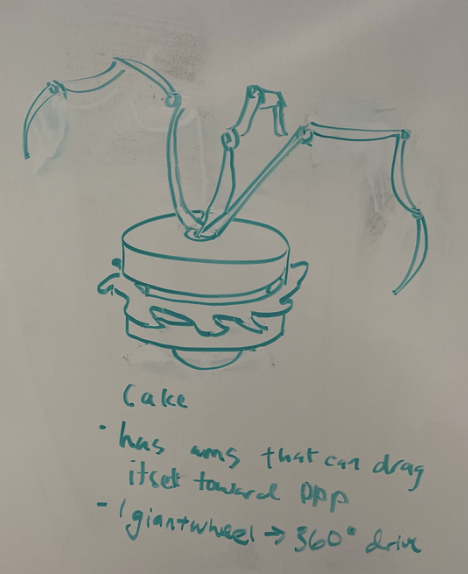 Cake
- has arms that can drag
itself toward opp
- 1 giant wheel → 360° drive